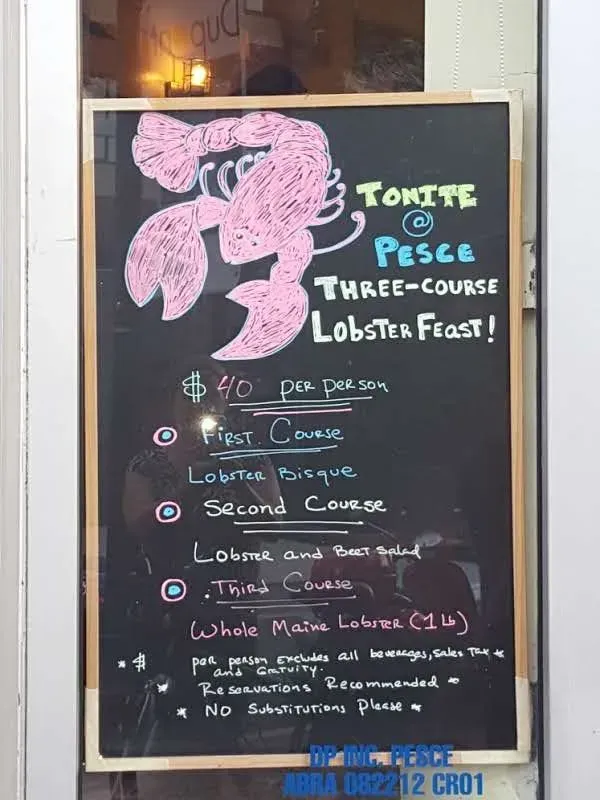 TONITE
@
PESCE
THREE-COURSE
LOBSTER FEAST!
$ 40 PER PERSON
FIRST. COURSE
LOBSTER BISQUE
SECOND COURSE
LOBSTER AND BEET SALAD
.THIRD COURSE
WHOLE MAINE LOBSTER (1 Lb)
* $ per person excludes all beverages, sales tax *
and gratuity.
* RESERVATIONS RECOMMENDED *
* NO SUBSTITUTIONS PLEASE *
DP INC. PESCE
ABRA 082212 CR01